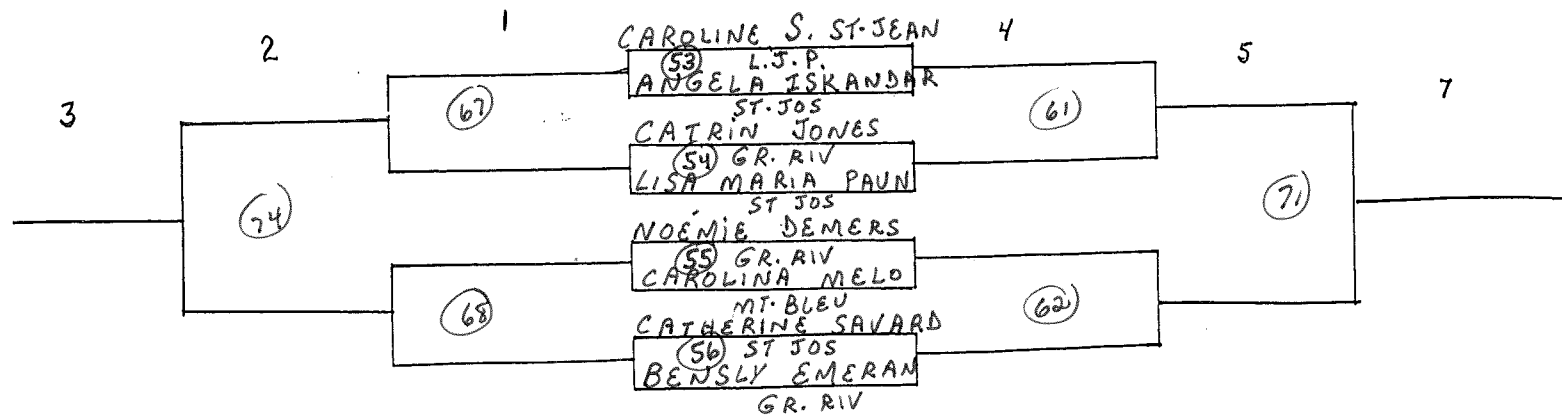 1
2
3
CAROLINE S. ST-JEAN
53 L.J.P.
ANGELA ISKANDAR
ST-JOS
CATRIN JONES
54 GR. RIV
LISA MARIA PAUN
ST JOS
NOÉMIE DEMERS
55 GR. RIV
CAROLINA MELO
MT-BLEU
CATHERINE SAVARD
56 ST JOS
BENSLY EMERAN
GR. RIV
67
68
74
4
5
7
61
62
71